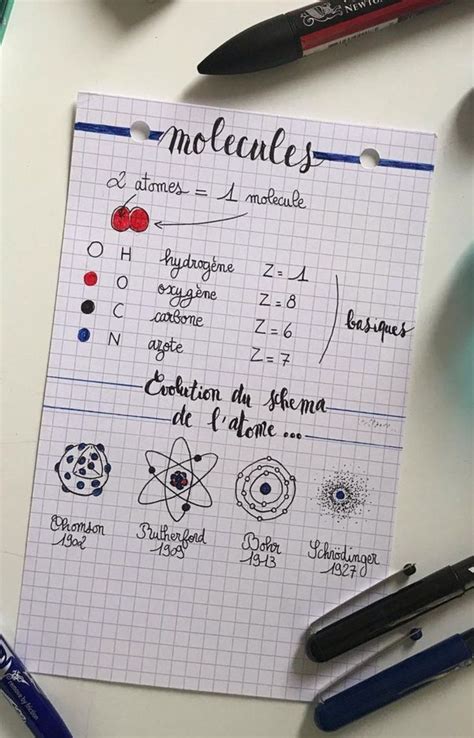 molecules
2 atomes = 1 molecule
H hydrogène Z = 1
O oxygène Z = 8
C carbone Z = 6
N azote Z = 7
basiques
Evolution du schema
de l'atome ...
Thomson
1902
Rutherford
1909
Bohr
1913
Schrödinger
1927